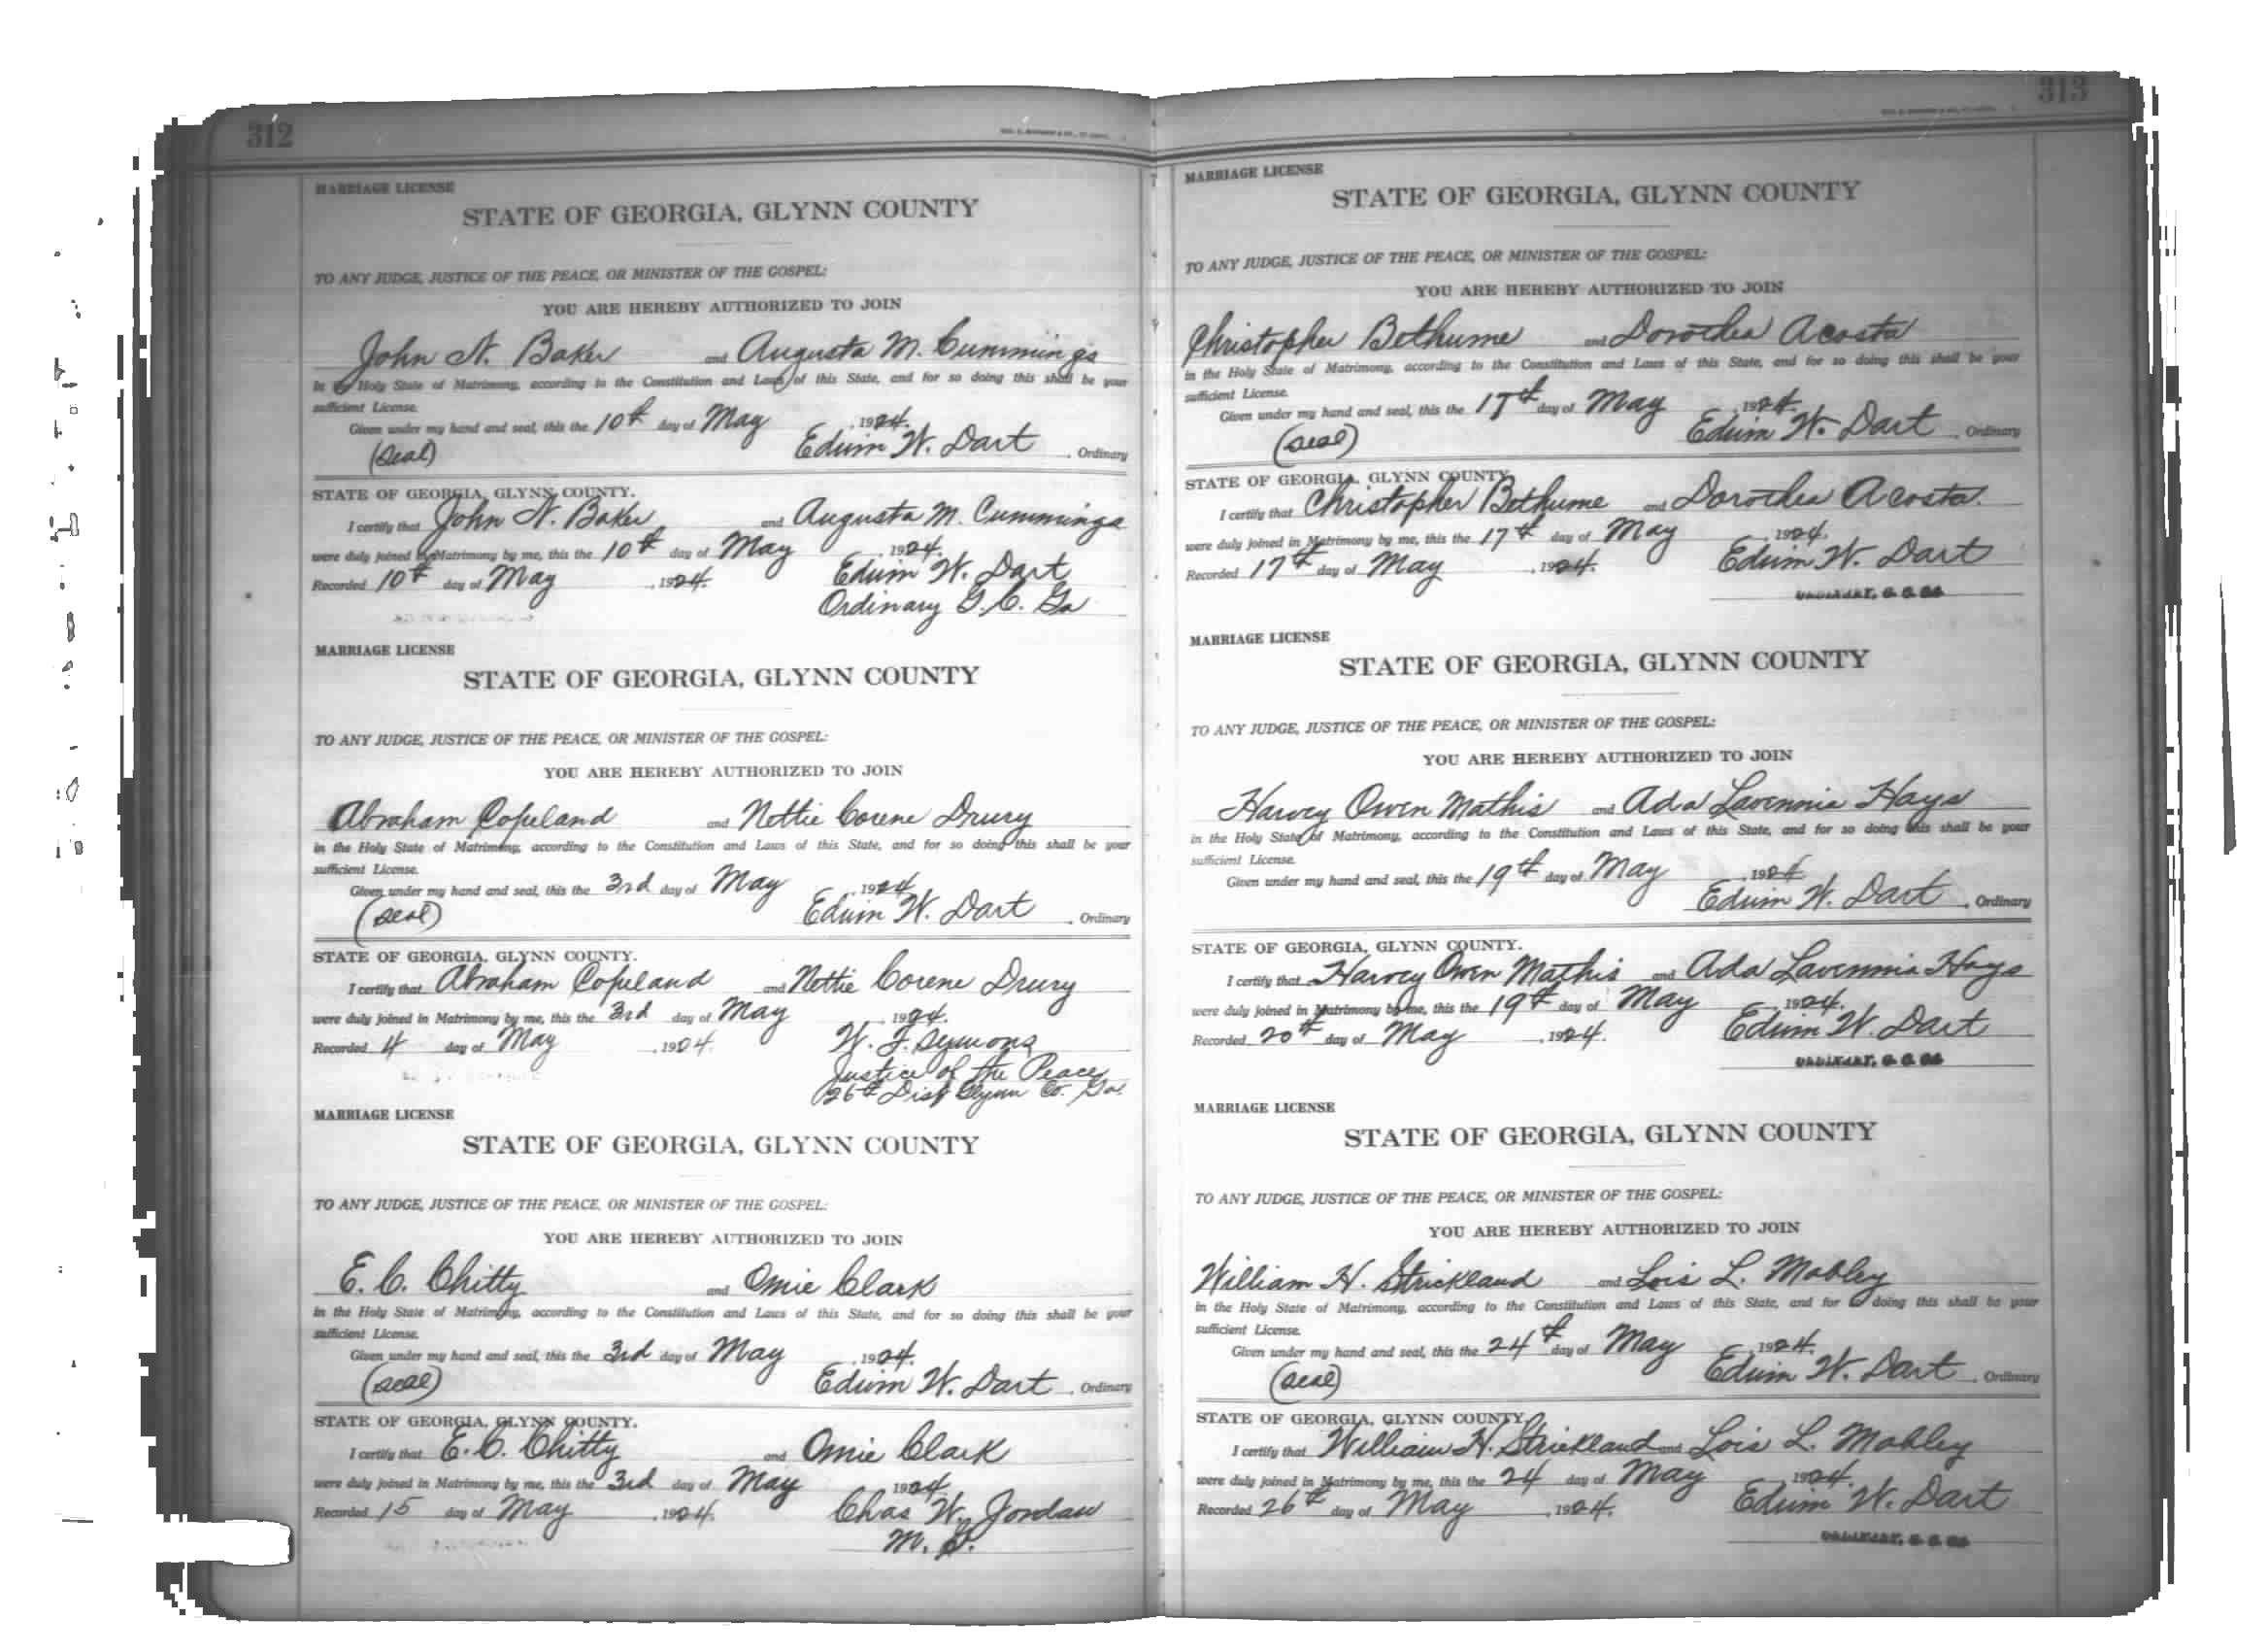 312
MARRIAGE LICENSE
STATE OF GEORGIA, GLYNN COUNTY
TO ANY JUDGE, JUSTICE OF THE PEACE, OR MINISTER OF THE GOSPEL:
YOU ARE HEREBY AUTHORIZED TO JOIN
John N. Baker and Augusta M. Cummings
in the Holy State of Matrimony, according to the Constitution and Laws of this State, and for so doing this shall be your
sufficient License.
Given under my hand and seal, this the 10th day of May, 1924.
(Seal) Edwin W. Dart, Ordinary
STATE OF GEORGIA, GLYNN COUNTY.
I certify that John N. Baker and Augusta M. Cummings
were duly joined in Matrimony by me, this the 10th day of May, 1924.
Recorded 10th day of May, 1924. Edwin W. Dart
Ordinary G. C. Ga
MARRIAGE LICENSE
STATE OF GEORGIA, GLYNN COUNTY
TO ANY JUDGE, JUSTICE OF THE PEACE, OR MINISTER OF THE GOSPEL:
YOU ARE HEREBY AUTHORIZED TO JOIN
Abraham Copeland and Nettie Corene Drury
in the Holy State of Matrimony, according to the Constitution and Laws of this State, and for so doing this shall be your
sufficient License.
Given under my hand and seal, this the 3rd day of May, 1924
(Seal) Edwin W. Dart, Ordinary
STATE OF GEORGIA, GLYNN COUNTY.
I certify that Abraham Copeland and Nettie Corene Drury
were duly joined in Matrimony by me, this the 3rd day of May, 1924.
Recorded 4 day of May, 1924. W. F. Symons
Justice of the Peace
26th Dist Glynn Co. Ga.
MARRIAGE LICENSE
STATE OF GEORGIA, GLYNN COUNTY
TO ANY JUDGE, JUSTICE OF THE PEACE, OR MINISTER OF THE GOSPEL:
YOU ARE HEREBY AUTHORIZED TO JOIN
E. C. Chitty and Omie Clark
in the Holy State of Matrimony, according to the Constitution and Laws of this State, and for so doing this shall be your
sufficient License.
Given under my hand and seal, this the 3rd day of May, 1924.
(Seal) Edwin W. Dart, Ordinary
STATE OF GEORGIA, GLYNN COUNTY.
I certify that E. C. Chitty and Omie Clark
were duly joined in Matrimony by me, this the 3rd day of May, 1924.
Recorded 15 day of May, 1924. Chas W. Jordan
M. G.
313
MARRIAGE LICENSE
STATE OF GEORGIA, GLYNN COUNTY
TO ANY JUDGE, JUSTICE OF THE PEACE, OR MINISTER OF THE GOSPEL:
YOU ARE HEREBY AUTHORIZED TO JOIN
Christopher Bethume and Dorothea Acosta
in the Holy State of Matrimony, according to the Constitution and Laws of this State, and for so doing this shall be your
sufficient License.
Given under my hand and seal, this the 17th day of May, 1924.
(Seal) Edwin W. Dart, Ordinary
STATE OF GEORGIA, GLYNN COUNTY.
I certify that Christopher Bethume and Dorothea Acosta.
were duly joined in Matrimony by me, this the 17th day of May, 1924.
Recorded 17th day of May, 1924. Edwin W. Dart
ORDINARY, G. C. GA
MARRIAGE LICENSE
STATE OF GEORGIA, GLYNN COUNTY
TO ANY JUDGE, JUSTICE OF THE PEACE, OR MINISTER OF THE GOSPEL:
YOU ARE HEREBY AUTHORIZED TO JOIN
Harvey Owen Mathis and Ada Lavennia Hays
in the Holy State of Matrimony, according to the Constitution and Laws of this State, and for so doing this shall be your
sufficient License.
Given under my hand and seal, this the 19th day of May, 1924
Edwin W. Dart, Ordinary
STATE OF GEORGIA, GLYNN COUNTY.
I certify that Harvey Owen Mathis and Ada Lavennia Hays
were duly joined in Matrimony by me, this the 19th day of May, 1924.
Recorded 20th day of May, 1924. Edwin W. Dart
ORDINARY, G. C. GA
MARRIAGE LICENSE
STATE OF GEORGIA, GLYNN COUNTY
TO ANY JUDGE, JUSTICE OF THE PEACE, OR MINISTER OF THE GOSPEL:
YOU ARE HEREBY AUTHORIZED TO JOIN
William H. Strickland and Lois L. Mobley
in the Holy State of Matrimony, according to the Constitution and Laws of this State, and for so doing this shall be your
sufficient License.
Given under my hand and seal, this the 24th day of May, 1924.
(Seal) Edwin W. Dart, Ordinary
STATE OF GEORGIA, GLYNN COUNTY.
I certify that William H. Strickland and Lois L. Mobley
were duly joined in Matrimony by me, this the 24 day of May, 1924.
Recorded 26th day of May, 1924. Edwin W. Dart
ORDINARY, G. C. GA